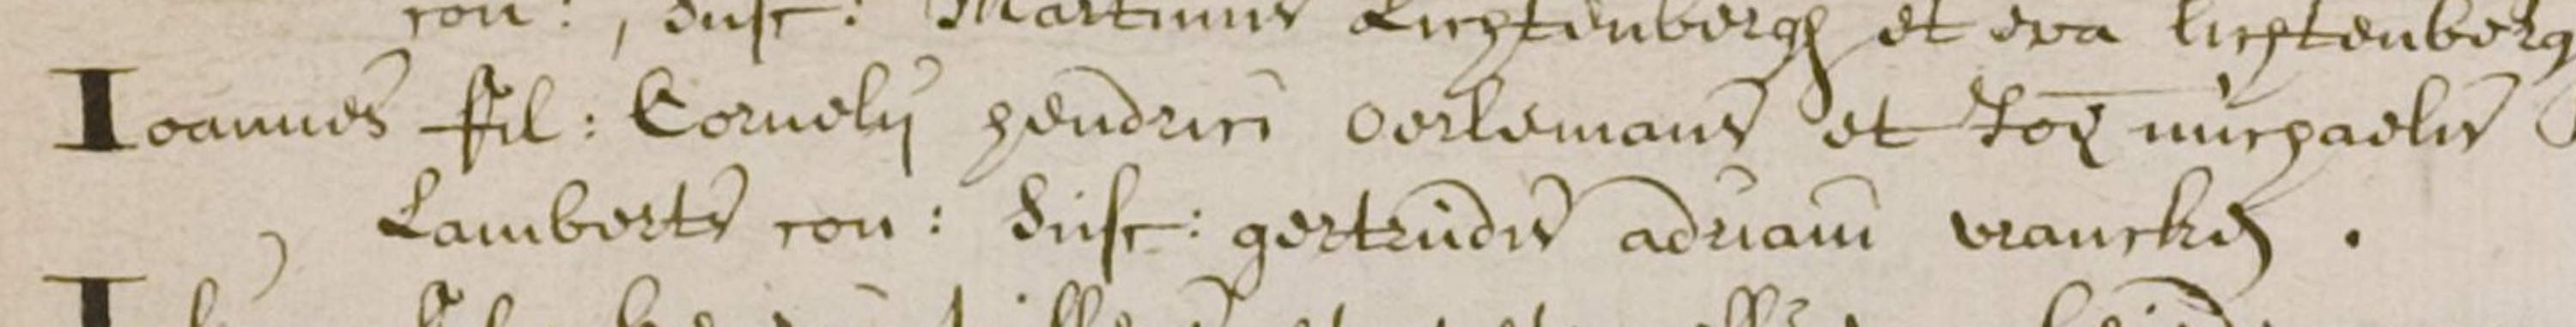 con: , Susc: Martinus Lichtenbergh et eva lichtenberg
Ioannes fil: Cornelij hendrici Oerlemans et michaelis
Lamberts con: Susc: gertrudis adriani vrancken .